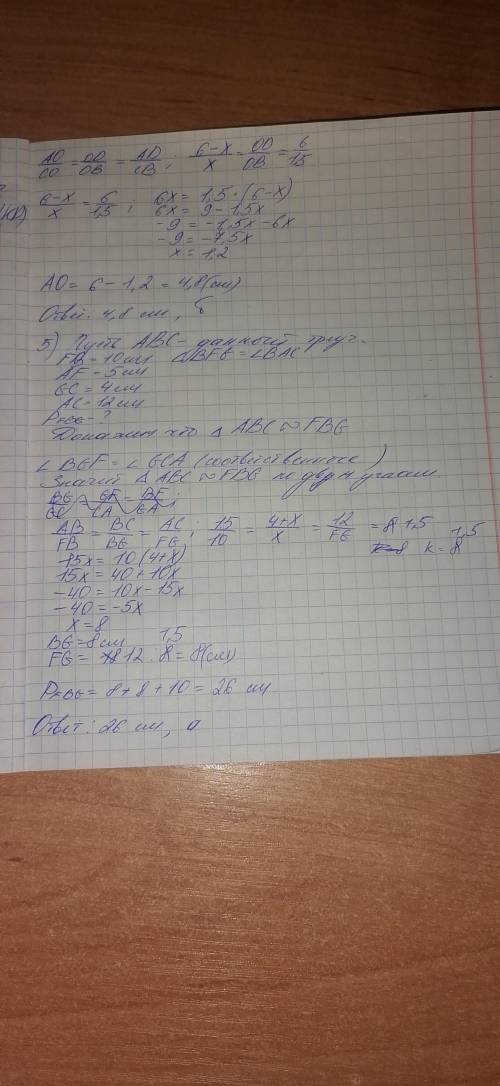 AO/CO = OD/OB = AD/CB ; 6-x/x = OD/OB = 6/15
6-x/x = 6/1,5 ; 6x = 1,5·(6-x)
6x = 9-1,5x
-9 = -1,5x-6x
-9 = -7,5x
x = 1,2
AO = 6-1,2 = 4,8(см)
Ответ: 4,8 см, б
5) Пусть ABC - данный треуг.
FB = 10 см ∠BFG = ∠BAC
AF = 5 см
GC = 4 см
AC = 12 см
P FBG - ?
Докажем что △ ABC ≈ FBG
∠ BGF = ∠ GCA (соответственные)
Значит △ ABC ≈ FBG по двум углам
BG/GC = GF/CA = BF/GA ;
AB/FB = BC/BG = AC/FG ; 15/10 = 4+x/x = 12/FG = 1,5
k = 1,5
15x = 10(4+x)
15x = 40+10x
-40 = 10x-15x
-40 = -5x
x = 8
BG = 8 см
FG = 12 : 1,5 = 8(см)
P FBG = 8+8+10 = 26 см
Ответ: 26 см, а